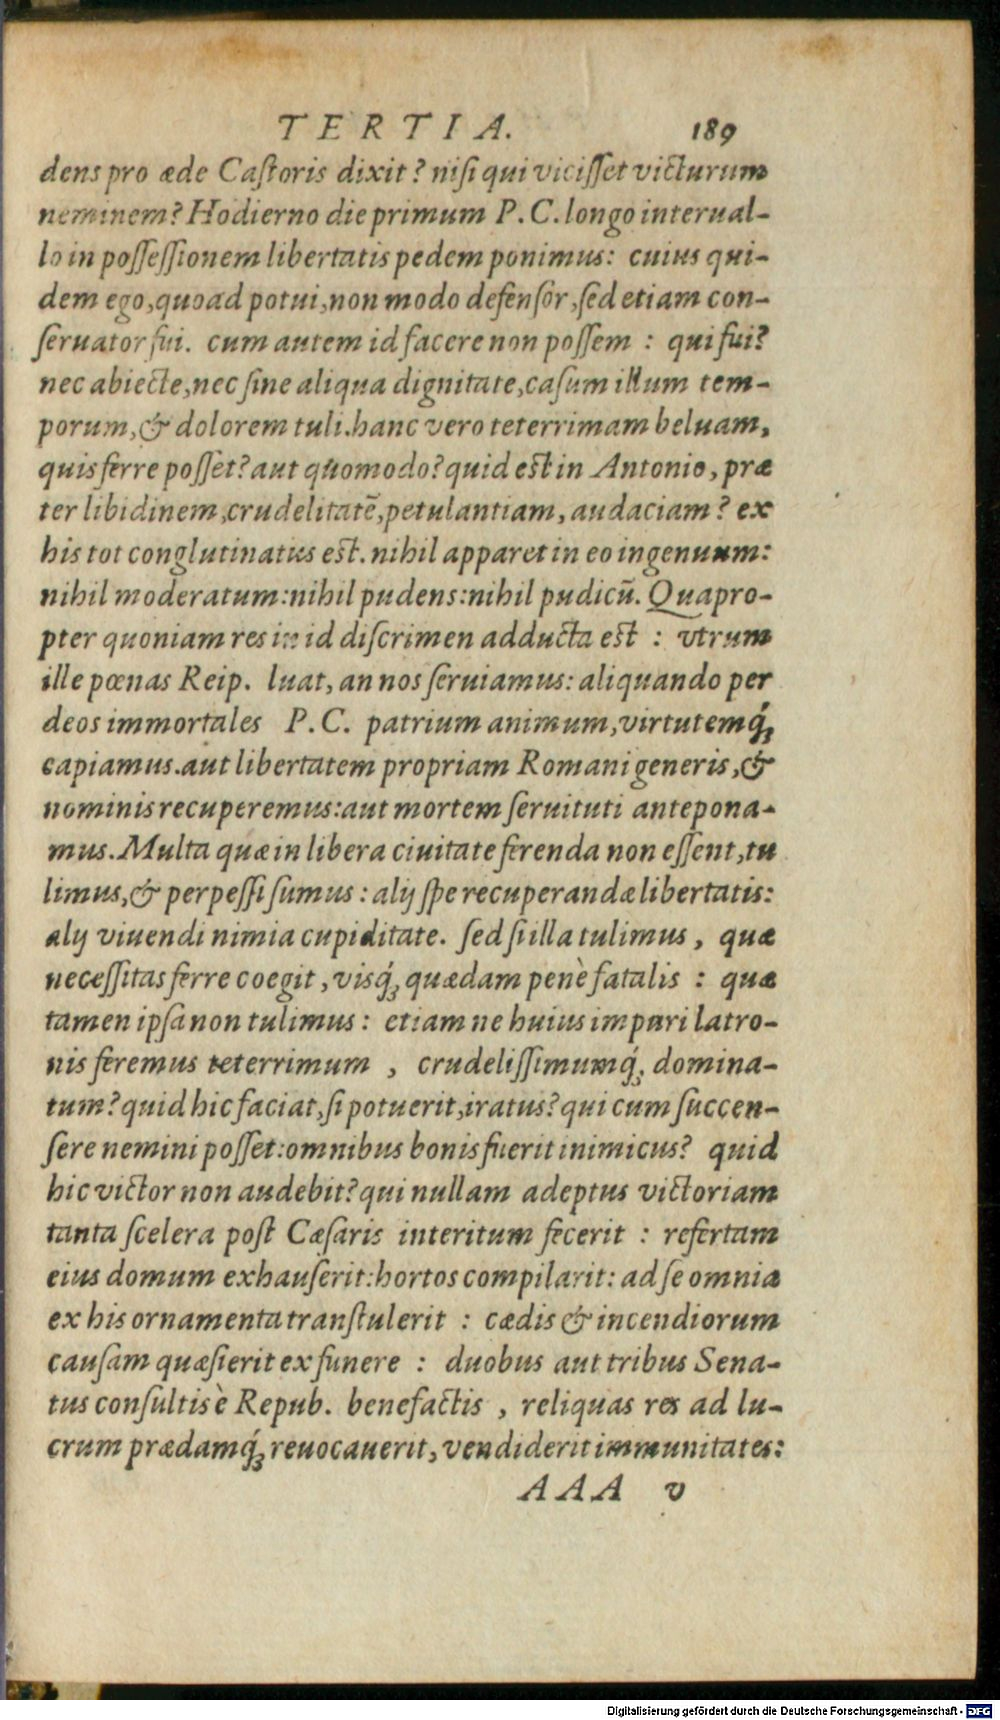 TERTIA. 189
dens pro æde Castoris dixit? nisi qui vicisset victurum
neminem? Hodierno die primum P. C. longo interual-
lo in possessionem libertatis pedem ponimus: cuius qui-
dem ego, quoad potui, non modo defensor, sed etiam con-
seruator fui. cum autem id facere non possem : qui fui?
nec abiecte, nec sine aliqua dignitate, casum illum tem-
porum, & dolorem tuli. hanc vero teterrimam beluam,
quis ferre posset? aut quomodo? quid est in Antonio, præ
ter libidinem, crudelitatē, petulantiam, audaciam? ex
his tot conglutinatus est. nihil apparet in eo ingenuum:
nihil moderatum: nihil pudens: nihil pudicū. Quapro-
pter quoniam res in id discrimen adducta est : vtrum
ille pœnas Reip. luat, an nos seruiamus: aliquando per
deos immortales P. C. patrium animum, virtutemq́;
capiamus. aut libertatem propriam Romani generis, &
nominis recuperemus: aut mortem seruituti antepona-
mus. Multa quæ in libera ciuitate ferenda non essent, tu
limus, & perpessi sumus : alij spe recuperandæ libertatis:
alij viuendi nimia cupiditate. sed si illa tulimus, quæ
necessitas ferre coegit, visq́; quædam penè fatalis : quæ
tamen ipsa non tulimus: etiam ne huius impuri latro-
nis feremus teterrimum, crudelissimumq́; domina-
tum? quid hic faciat, si potuerit, iratus? qui cum succen-
sere nemini posset: omnibus bonis fuerit inimicus? quid
hic victor non audebit? qui nullam adeptus victoriam
tanta scelera post Cæsaris interitum fecerit : refertam
eius domum exhauserit: hortos compilarit: ad se omnia
ex his ornamenta transtulerit : cædis & incendiorum
causam quæsierit ex funere : duobus aut tribus Sena-
tus consultis è Repub. benefactis, reliquas res ad lu-
crum prædamq́; reuocauerit, vendiderit immunitates:
AAA v
Digitalisierung gefördert durch die Deutsche Forschungsgemeinschaft - DFG